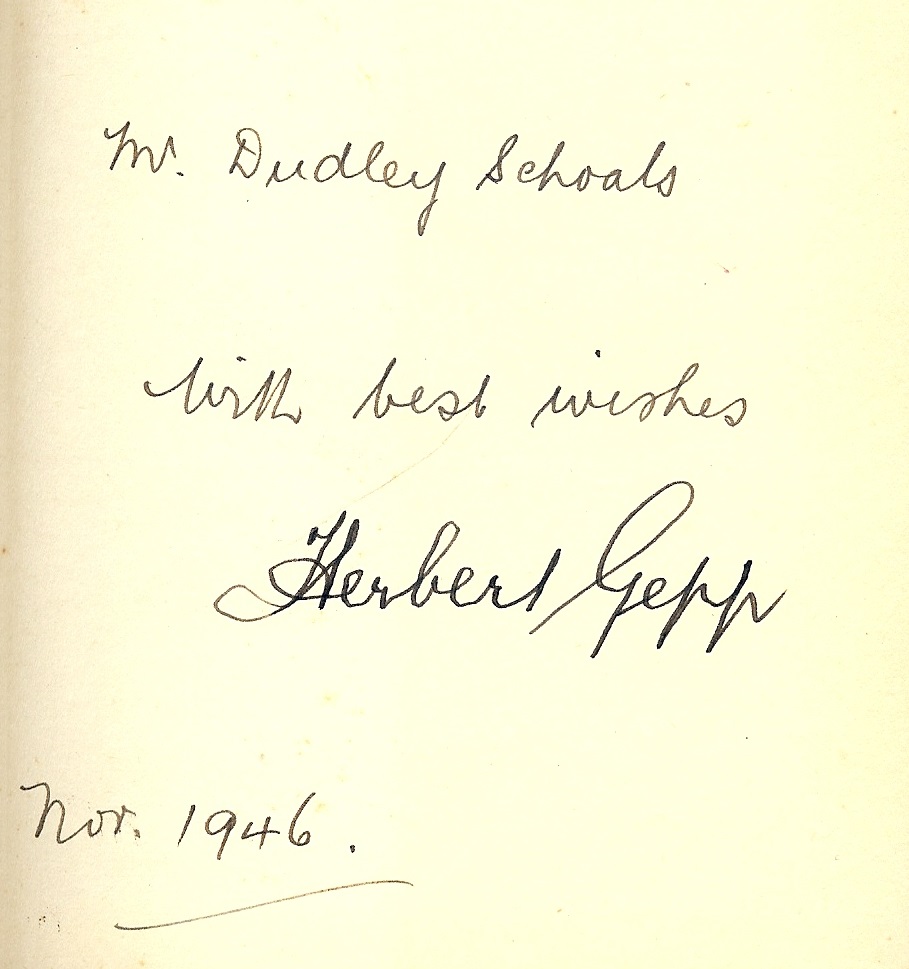 Mr. Dudley Schoals
With best wishes
Herbert Gepp
Nov. 1946.